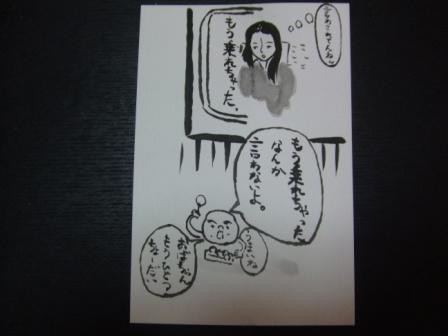 言わされてんねん
もう乗れちゃった。
もう乗れちゃった
なんか
言わないよ。
うまいね
おばちゃん
もうひとつ
ちょーだい